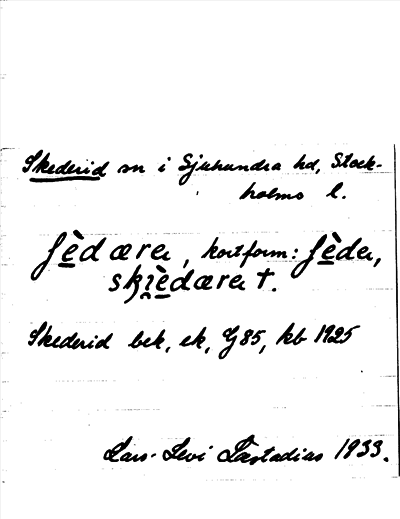 Skederid sn i Sjuhundra hd, Stock-
holms l.
ʃèdærer, kortform: ʃèder,
ski̯èdærer †.
Skederid bek, ek, G85, kb 1925
Lars-Levi Læstadius 1933.